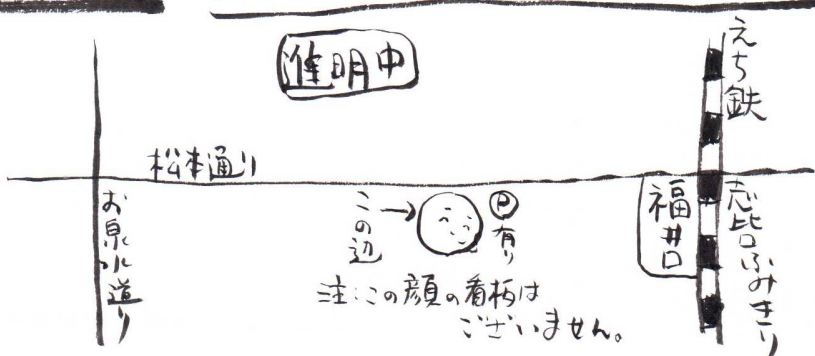 進明中
えち鉄
松本通り
お泉水通り
この辺→
Ⓟ有り
福井口
志比口ふみきり
注:この顔の看板は
ございません。